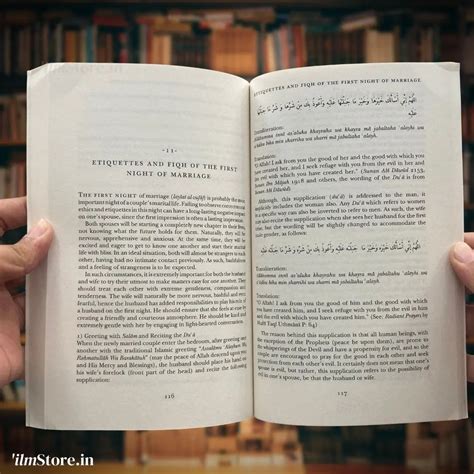 ilmStore.in
· 13 ·
ETIQUETTES AND FIQH OF THE FIRST
NIGHT OF MARRIAGE
THE FIRST NIGHT of marriage (laylat al-zafāf) is probably the most
important night of a couple's marital life. Failing to observe convenient
ethics and etiquettes in this night can have a long-lasting negative impact
on one's spouse, since the first impression is often a lasting impression.
Both spouses will be starting a completely new chapter in their lives,
not knowing what the future holds for them. Naturally, they will be
nervous, apprehensive and anxious. At the same time, they will be
excited and eager to get to know one another and start their marital
life with bliss. In an ideal situation, both will almost be strangers to each
other, having had no intimate contact previously. As such, bashfulness
and a feeling of strangeness is to be expected.
In such circumstances, it is extremely important for both the husband
and wife to try their utmost to make matters easy for one another. They
should treat each other with extreme gentleness, compassion and
tenderness. The wife will naturally be more nervous, bashful and
fearful; hence the husband has added responsibilities to play
on the first night. He should ensure that she feels at ease by
creating a friendly and courteous atmosphere. He should be kind and
extremely gentle with her by engaging in light-hearted conversation.
1) Greeting with Salām and Reciting the Du'ā
When the newly married couple enter the bedroom, after greeting one
another with the traditional Islamic greeting "Assalāmu Alaykum Wa
Rahmatullāh Wa Barakātuh" (may the peace of Allah descend upon you
and His Mercy and Blessings), the husband should place his hand on
his wife's forelock (front part of the head) and recite the following
supplication:
116
ETIQUETTES AND FIQH OF THE FIRST NIGHT OF MARRIAGE
اللهم إني أسألك خيرها وخير ما جبلتها عليه وأعوذ بك من شرها وشر ما جبلتها
عليه
Transliteration:
Allāhumma innī as'aluka khayrahā wa khayra mā jabaltahā 'alayhi wa
a'ūdhu bika min sharrihā wa sharri mā jabaltahā 'alayh
Translation:
"O Allah! I ask from you the good of her and the good with which you
have created her, and I seek refuge with you from the evil in her and
from the evil with which you have created her." (Sunan Abī Dāwūd 2153,
Sunan Ibn Mājah 1918 and others, the wording of the Du'ā is of
Abū Dāwūd)
Although, this supplication (du'ā) is addressed to the man, it
equally includes the woman also. Any Du'ā in which the words refer
to a specific gender can also be inverted to refer to men. As such, the wife
can also recite the supplication when she sees her husband for the first
time, but the wording will be slightly changed to accommodate the
male gender, as follows:
اللهم إني أسألك خيره وخير ما جبلته عليه وأعوذ بك من شره وشر ما جبلته عليه
Transliteration:
Allāhumma innī as'aluka khayrahu wa khayra mā jabaltahu 'alayhi wa
a'ūdhu bika min sharrihi wa sharri mā jabaltahu 'alayh
Translation:
"O Allah! I ask from you the good of him and the good with which
you have created him, and I seek refuge with you from the evil in him
and the evil with which you have created him." (See: Husband Prayers by
Mufti Taqi Uthmani P: 64)
The reason behind this supplication is that all human beings, with
the exception of the Prophets (peace be upon them), are prone to
the whisperings of the Devil and have a propensity to evil, and so the
couple are encouraged to pray for the good in each other and seek
protection from each other's evil. It certainly does not mean that one's
spouse is evil, but rather, this supplication is out of the possible evil
in one's spouse, be that the husband or wife.
117
'ilmStore.in